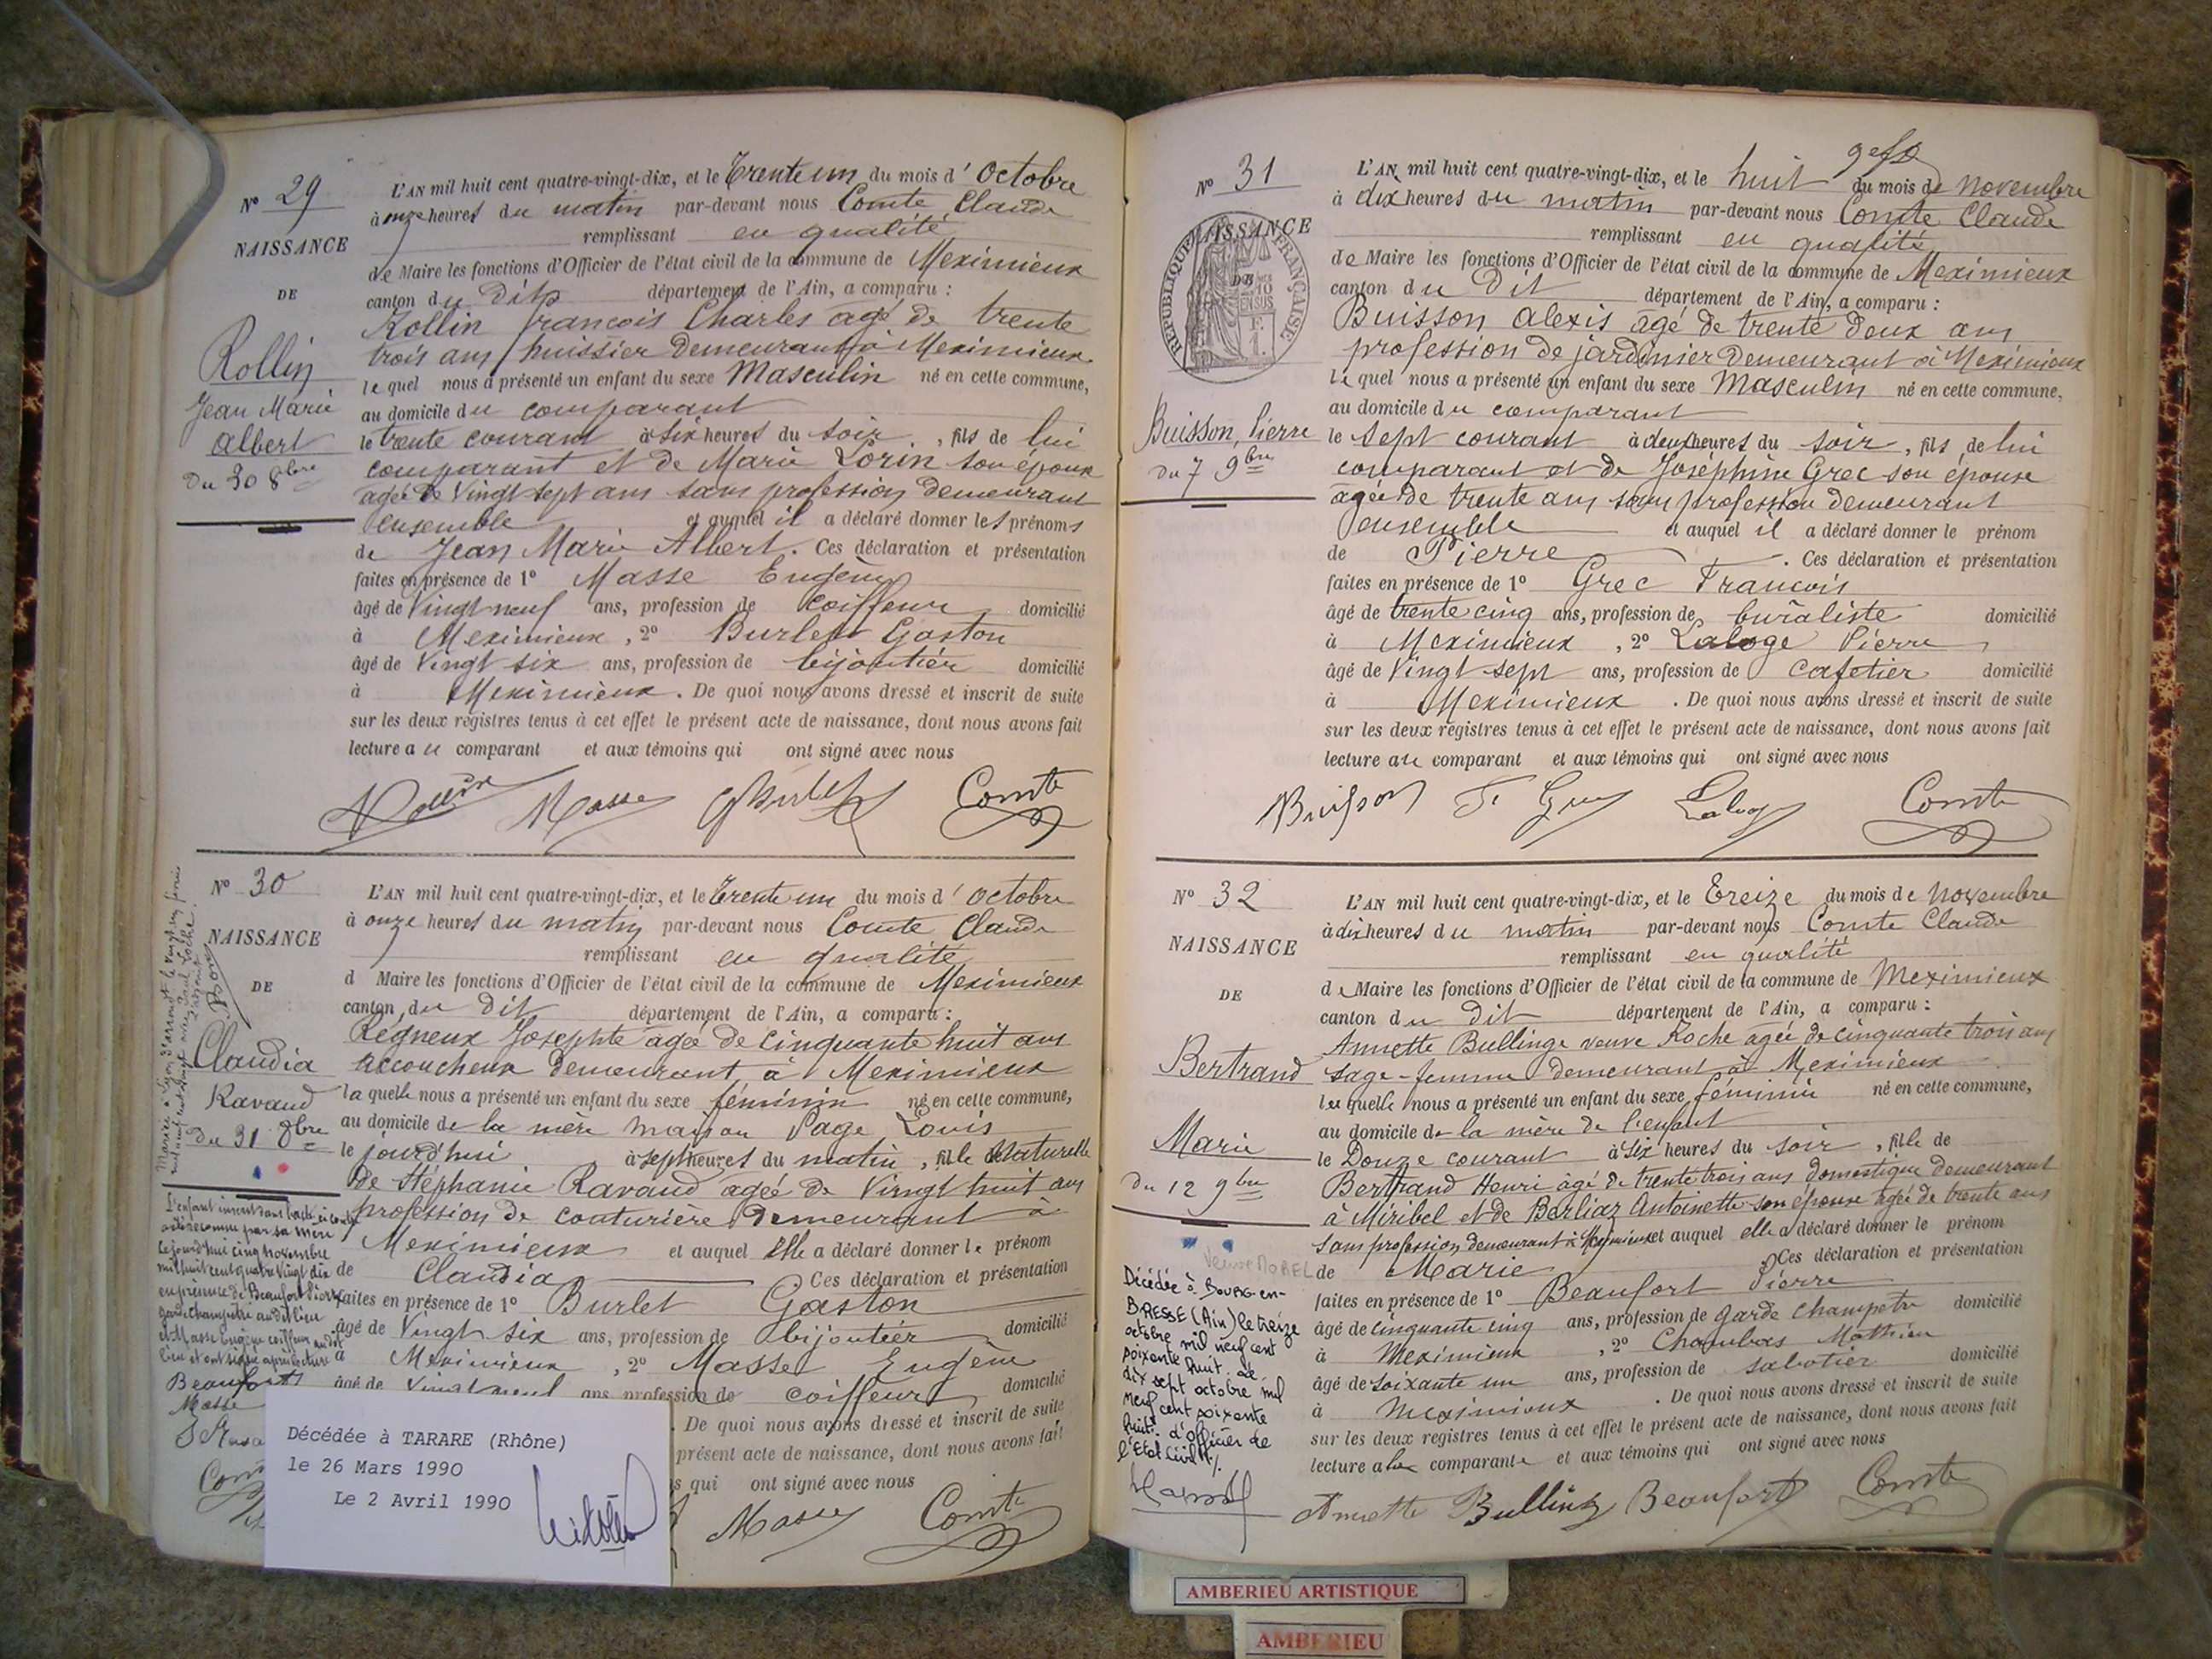 N° 29
NAISSANCE
DE
Rollin
Jean Marie
Albert
Du 30 8bre
L'AN mil huit cent quatre-vingt-dix, et le Trente un du mois d' Octobre
à onze heures du matin par-devant nous Comte Claude
remplissant en qualité
de Maire les fonctions d'Officier de l'état civil de la commune de Meximieux
canton du Dit département de l'Ain, a comparu :
Rollin francois Charles agé de trente
trois ans huissier demeurant à Meximieux
lequel nous a présenté un enfant du sexe Masculin né en cette commune,
au domicile du comparant
le trente courant à six heures du soir, fils de lui
comparant et de Marie Lorin son épouse
agée de Vingt sept ans sans profession demeurant
ensemble et auquel il a déclaré donner les prénoms
de Jean Marie Albert. Ces déclaration et présentation
faites en présence de 1° Masse Eugène
âgé de Vingt neuf ans, profession de coiffeur domicilié
à Meximieux, 2° Burlet Gaston
âgé de Vingt six ans, profession de bijoutier domicilié
à Meximieux. De quoi nous avons dressé et inscrit de suite
sur les deux registres tenus à cet effet le présent acte de naissance, dont nous avons fait
lecture au comparant et aux témoins qui ont signé avec nous
Rollin Masse GBurlet Comte
N° 30
NAISSANCE
DE
Claudia
Ravaud
Du 31 8bre
L'enfant inscrit dans l'acte ci contre
a été reconnu par sa mère
le jourd'hui cinq Novembre
mil huit cent quatre Vingt dix
en présence de Beaufort Pierre
garde champêtre au dit lieu
et Masse Eugène coiffeur au dit
lieu et ont signé après lecture
Beaufort
Masse
L'AN mil huit cent quatre-vingt-dix, et le Trente un du mois d' Octobre
à onze heures du matin par-devant nous Comte Claude
remplissant en qualité
d Maire les fonctions d'Officier de l'état civil de la commune de Meximieux
canton du dit département de l'Ain, a comparu :
Regneux Josephte agée de Cinquante huit ans
accoucheur demeurant à Meximieux
laquelle nous a présenté un enfant du sexe féminin né en cette commune,
au domicile de la mère maison Page Louis
le jourd'hui à sept heures du matin, fille Naturelle
de Stéphanie Ravaud agée de Vingt huit ans
profession de couturière Demeurant à
Meximieux et auquel Elle a déclaré donner le prénom
de Claudia Ces déclaration et présentation
faites en présence de 1° Burlet Gaston
âgé de Vingt six ans, profession de bijoutier domicilié
à Meximieux, 2° Masse Eugène
âgé de Vingt neuf ans profession de coiffeur domicilié
. De quoi nous avons dressé et inscrit de suite
présent acte de naissance, dont nous avons fait
s qui ont signé avec nous
Masse Comte
Décédée à TARARE (Rhône)
le 26 Mars 1990
Le 2 Avril 1990
N° 31
NAISSANCE
DE
RÉPUBLIQUE FRANÇAISE
Buisson, Pierre
Du 7 9bre
L'AN mil huit cent quatre-vingt-dix, et le huit du mois de Novembre
à dix heures du matin par-devant nous Comte Claude
remplissant en qualité
de Maire les fonctions d'Officier de l'état civil de la commune de Meximieux
canton du Dit département de l'Ain, a comparu :
Buisson Alexis âgé de trente deux ans
profession de jardinier demeurant à Meximieux
Lequel nous a présenté un enfant du sexe Masculin né en cette commune,
au domicile du comparant
le Sept courant à deux heures du soir, fils de lui
comparant et de Joséphine Grec son épouse
agée de trente ans sans profession demeurant
ensemble et auquel il a déclaré donner le prénom
de Pierre. Ces déclaration et présentation
faites en présence de 1° Grec Francois
âgé de trente cinq ans, profession de buraliste domicilié
à Meximieux, 2° Laloge Pierre
âgé de Vingt sept ans, profession de cafetier domicilié
à Meximieux. De quoi nous avons dressé et inscrit de suite
sur les deux registres tenus à cet effet le présent acte de naissance, dont nous avons fait
lecture au comparant et aux témoins qui ont signé avec nous
Buisson Comte
N° 32
NAISSANCE
DE
Bertrand
Marie
Du 12 9bre
Veuve MOREL
Décédée à BOURG-en-
BRESSE (Ain) le treize
octobre mil neuf cent
soixante huit. Le
dix sept octobre mil
neuf cent soixante
huit. d'officier de
l'Etat Civil
L'AN mil huit cent quatre-vingt-dix, et le Treize du mois de Novembre
à dix heures du matin par-devant nous Comte Claude
remplissant en qualité
de Maire les fonctions d'Officier de l'état civil de la commune de Meximieux
canton du Dit département de l'Ain, a comparu :
Annette Bullinge veuve Roche agée de cinquante trois ans
sage-femme demeurant à Meximieux
laquelle nous a présenté un enfant du sexe féminin né en cette commune,
au domicile de la mère de l'enfant
le Douze courant à six heures du soir, fille de
Bertrand Henri âgé de trente trois ans domestique demeurant
à Miribel et de Berliaz Antoinette son épouse agée de trente ans
sans profession demeurant à Meximieux et auquel elle a déclaré donner le prénom
de Marie Ces déclaration et présentation
faites en présence de 1° Beaufort Pierre
âgé de cinquante cinq ans, profession de garde champetre domicilié
à Meximieux, 2° Chambas Mathieu
âgé de soixante un ans, profession de sabotier domicilié
à Meximieux. De quoi nous avons dressé et inscrit de suite
sur les deux registres tenus à cet effet le présent acte de naissance, dont nous avons fait
lecture a la comparante et aux témoins qui ont signé avec nous
Annette Bulling Beaufort Comte
AMBERIEU ARTISTIQUE
AMBERIEU